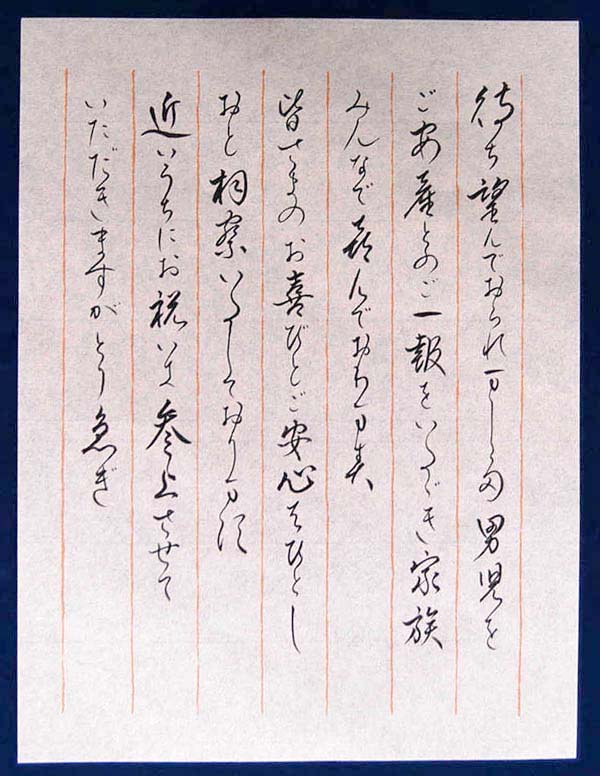 待ち望んでおられましたの男児を
ご安産とのご一報をいただき家族
みんなで喜んでおります
皆さまのお喜びとご安心もひとし
おと相察いたしております
近いうちにお祝いに参上させて
いただきますがとり急ぎ